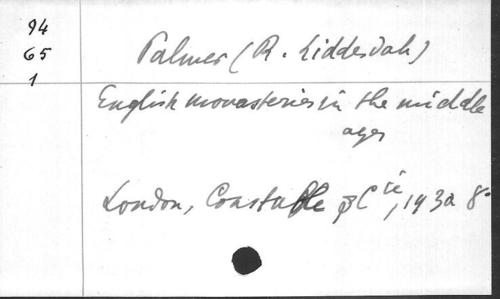 94
65
1
Palmer (R. Liddesdale)
English monasteries in the middle
ages
London, Constable & Cie, 1930 8°